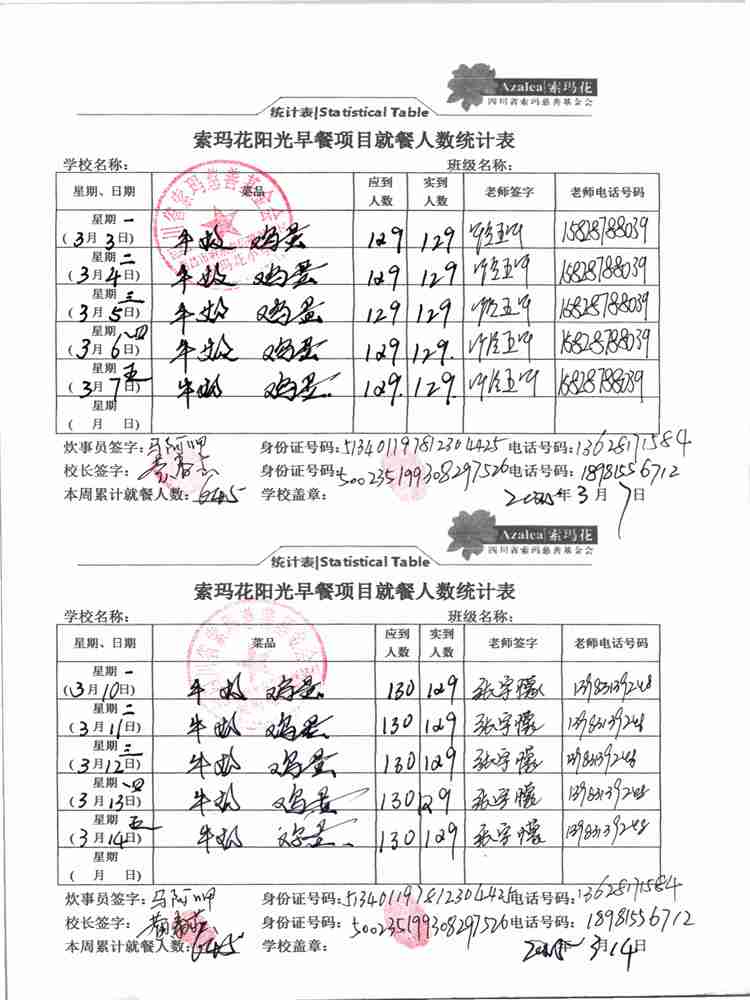 Azalea|索玛花
四川省索玛慈善基金会
统计表|Statistical Table
索玛花阳光早餐项目就餐人数统计表
学校名称: 班级名称:
星期、日期 菜品 应到人数 实到人数 老师签字 老师电话号码
星期一 (3月3日) 牛奶 鸡蛋 129 129 15828788039
星期二 (3月4日) 牛奶 鸡蛋 129 129 15828788039
星期三 (3月5日) 牛奶 鸡蛋 129 129 15828788039
星期四 (3月6日) 牛奶 鸡蛋 129 129. 15828788039
星期五 (3月7日) 牛奶 鸡蛋 129. 129. 15828788039
星期 ( 月 日)
炊事员签字:马阿呷 身份证号码:513401197812304425 电话号码:13628171584
校长签字: 身份证号码:500235199308297526 电话号码:18981556712
本周累计就餐人数:645 学校盖章: 2025年3月7日
Azalea|索玛花
四川省索玛慈善基金会
统计表|Statistical Table
索玛花阳光早餐项目就餐人数统计表
学校名称: 班级名称:
星期、日期 菜品 应到人数 实到人数 老师签字 老师电话号码
星期一 (3月10日) 牛奶 鸡蛋 130 129 张字檬 13983139248
星期二 (3月11日) 牛奶 鸡蛋 130 129 张字檬 13983139248
星期三 (3月12日) 牛奶 鸡蛋 130 129 张字檬 13983139248
星期四 (3月13日) 牛奶 鸡蛋 130 129 张字檬 13983139248
星期五 (3月14日) 牛奶 鸡蛋 130 129 张字檬 13983139248
星期 ( 月 日)
炊事员签字:马阿呷 身份证号码:513401197812304425 电话号码:13628171584
校长签字: 身份证号码:500235199308297526 电话号码:18981556712
本周累计就餐人数:645 学校盖章: 2025年3月14日